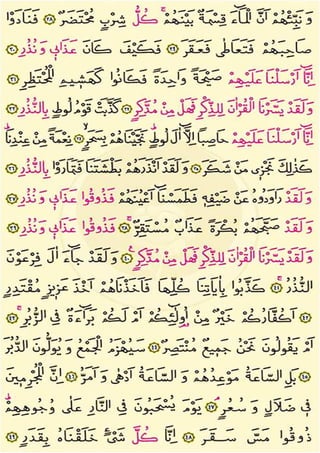 وَ نَبِّئْهُمْ اَنَّ الْمَآءَ قِسْمَةٌ بَيْنَهُمْ ۚ كُلُّ شِرْبٍ مُحْتَضَرٌ ﴿٢٨﴾ فَنَادَوْا
صَاحِبَهُمْ فَتَعَاطٰى فَعَقَرَ ﴿٢٩﴾ فَكَيْفَ كَانَ عَذَابٖى وَ نُذُرِ ﴿٣٠﴾
اِنَّٓا اَرْسَلْنَا عَلَيْهِمْ صَيْحَةً وَاحِدَةً فَكَانُوا كَهَشِيمِ الْمُحْتَظِرِ ﴿٣١﴾
وَ لَقَدْ يَسَّرْنَا الْقُرْاٰنَ لِلذِّكْرِ فَهَلْ مِنْ مُدَّكِرٍ ﴿٣٢﴾ كَذَّبَتْ قَوْمُ لُوطٍ بِالنُّذُرِ ﴿٣٣﴾
اِنَّٓا اَرْسَلْنَا عَلَيْهِمْ حَاصِبًا اِلَّٓا اٰلَ لُوطٍ ۖ نَجَّيْنَاهُمْ بِسَحَرٍ ﴿٣٤﴾ نِعْمَةً مِنْ عِنْدِنَا ۚ
كَذٰلِكَ نَجْزٖى مَنْ شَكَرَ ﴿٣٥﴾ وَ لَقَدْ اَنْذَرَهُمْ بَطْشَتَنَا فَتَمَارَوْا بِالنُّذُرِ ﴿٣٦﴾
وَ لَقَدْ رَاوَدُوهُ عَنْ ضَيْفِهٖ فَطَمَسْنَٓا اَعْيُنَهُمْ فَذُوقُوا عَذَابٖى وَ نُذُرِ ﴿٣٧﴾
وَ لَقَدْ صَبَّحَهُمْ بُكْرَةً عَذَابٌ مُسْتَقِرٌّ ﴿٣٨﴾ فَذُوقُوا عَذَابٖى وَ نُذُرِ ﴿٣٩﴾
وَ لَقَدْ يَسَّرْنَا الْقُرْاٰنَ لِلذِّكْرِ فَهَلْ مِنْ مُدَّكِرٍ ﴿٤٠﴾ وَ لَقَدْ جَٓاءَ اٰلَ فِرْعَوْنَ
النُّذُرُ ﴿٤١﴾ كَذَّبُوا بِاٰيَاتِنَا كُلِّهَا فَاَخَذْنَاهُمْ اَخْذَ عَزٖيزٍ مُقْتَدِرٍ
﴿٤٢﴾ اَكُفَّارُكُمْ خَيْرٌ مِنْ اُولٰٓئِكُمْ اَمْ لَكُمْ بَرَٓاءَةٌ فِى الزُّبُرِ ﴿٤٣﴾
اَمْ يَقُولُونَ نَحْنُ جَمٖيعٌ مُنْتَصِرٌ ﴿٤٤﴾ سَيُهْزَمُ الْجَمْعُ وَ يُوَلُّونَ الدُّبُرَ
﴿٤٥﴾ بَلِ السَّاعَةُ مَوْعِدُهُمْ وَ السَّاعَةُ اَدْهٰى وَ اَمَرُّ ﴿٤٦﴾ اِنَّ الْمُجْرِمٖينَ
فٖى ضَلَالٍ وَ سُعُرٍ ﴿٤٧﴾ يَوْمَ يُسْحَبُونَ فِى النَّارِ عَلٰى وُجُوهِهِمْ
ذُوقُوا مَسَّ سَقَرَ ﴿٤٨﴾ اِنَّا كُلَّ شَىْءٍ خَلَقْنَاهُ بِقَدَرٍ ﴿٤٩﴾